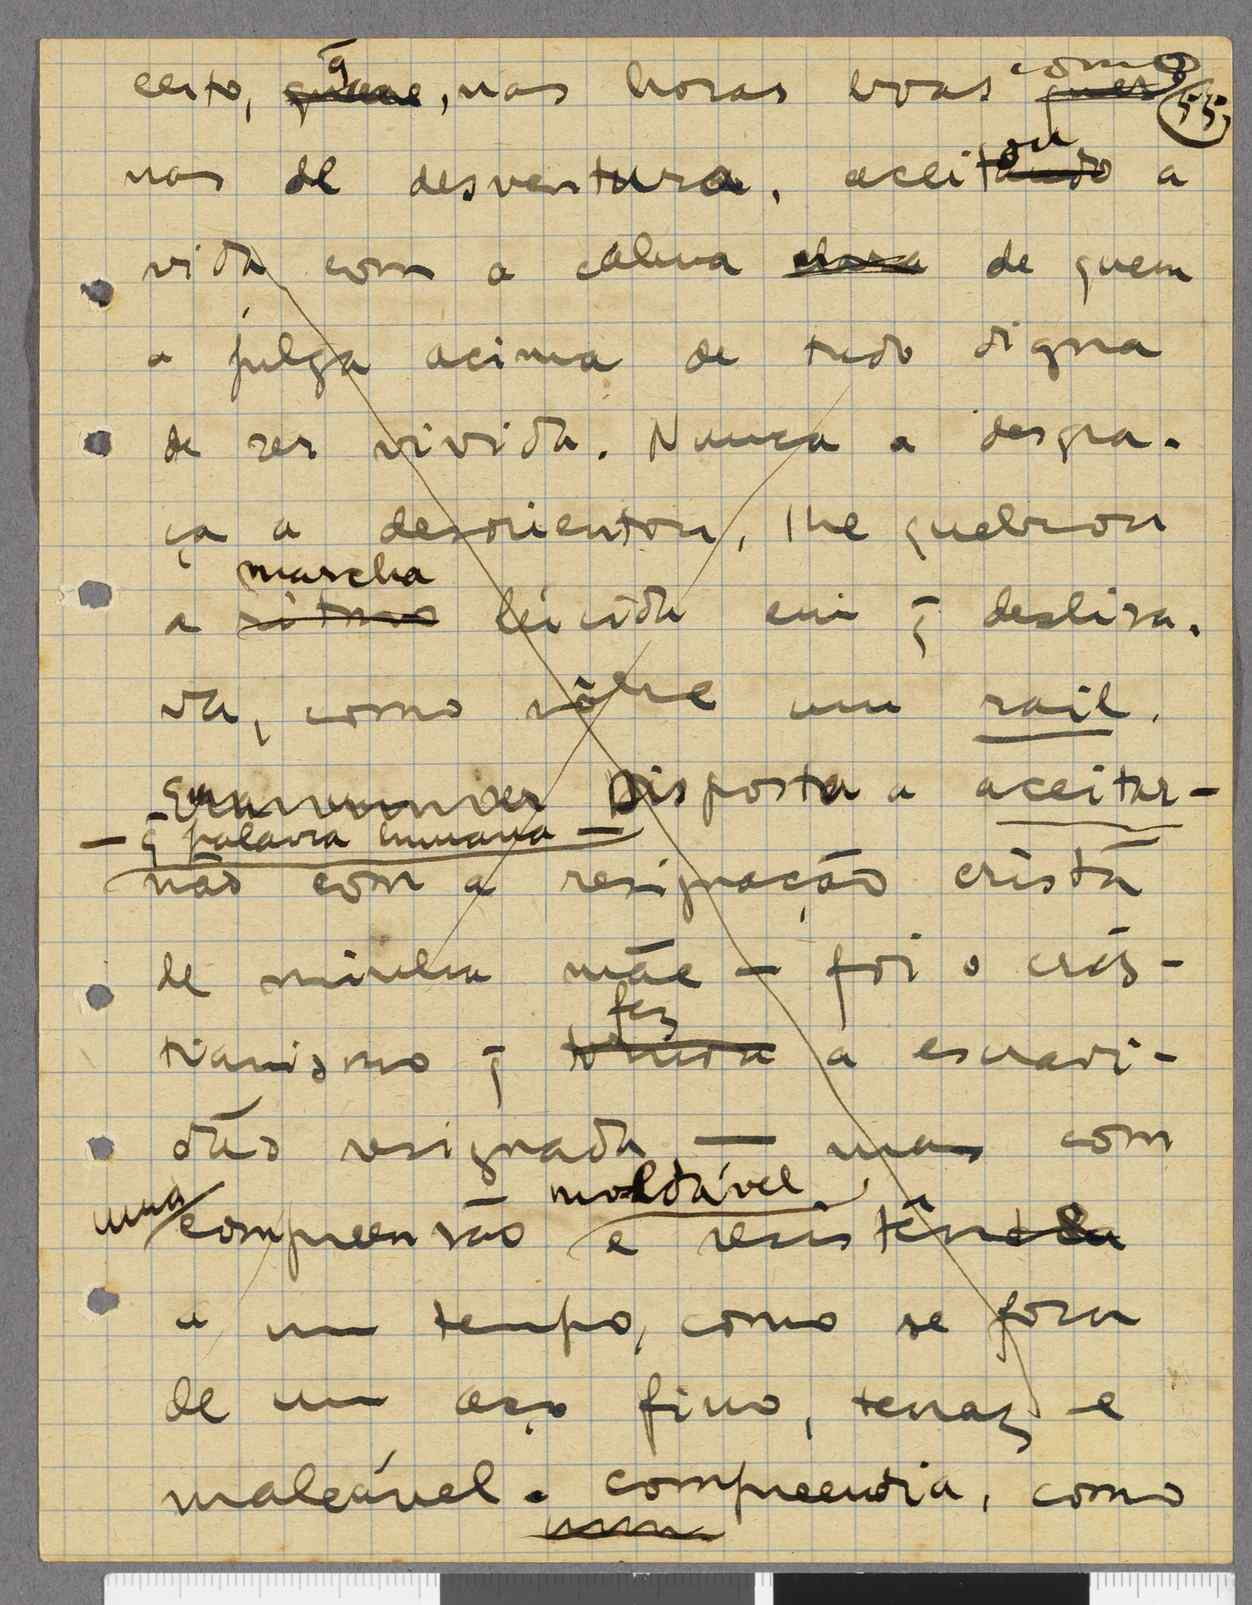 certo, q̃, nas horas boas como
55
nas de desventura, aceitou a
vida com a calma de quem
a julga acima de tudo digna
de ser vivida. Nunca a desgra-
ça a desorientou, lhe quebrou
marcha
a ritmo lúcida em q̃ desliza-
va, como sôbre um rail.
Disposta a aceitar-
— q̃ palavra humana —
não com a resignação cristã
de minha mãe — foi o cris-
fez
tianismo q̃ tornou a escravi-
dão resignada — mas com
moldável
uma compreensão e resistência
a um tempo, como se fora
de um aço fino, tenaz e
maleável. compreendia, como